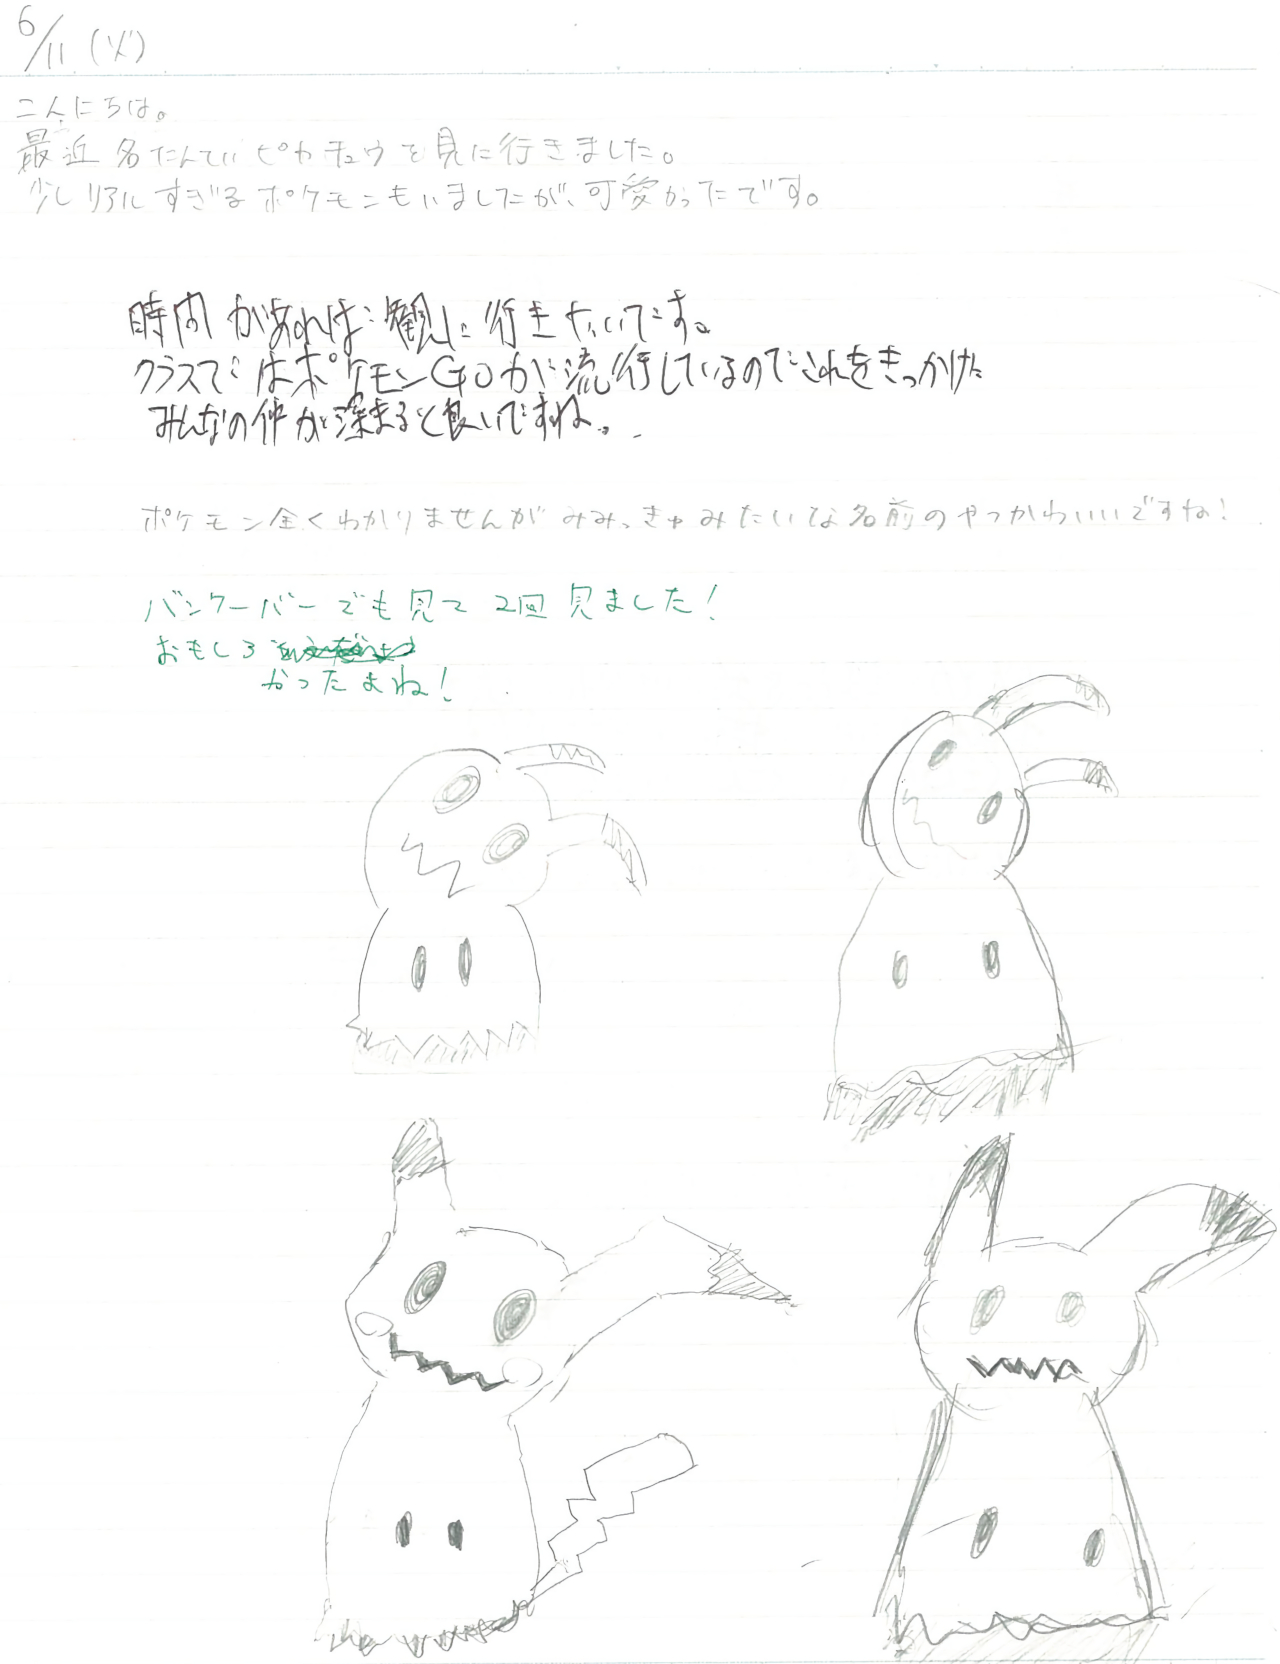 6/11 (火)
こんにちは。
最近 名たんてい ピカチュウ を 見に行きました。
少し リアル すぎる ポケモンもいましたが、可愛かったです。
時間 があれば 観に 行きたいです。
クラスでは ポケモンGOが 流行しているのでこれをきっかけに
みんなの仲が深まると良いですね。
ポケモン全くわかりませんが みみっきゅみたいな名前のやつかわいいですね!
バンクーバー でも 見て 2回 見ました!
おもしろ
かったよね!